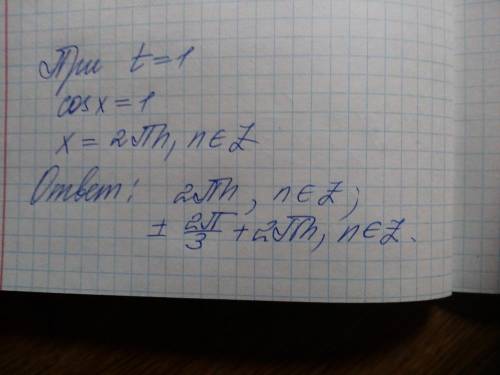 При t=1
cos x = 1
x = 2πn, n∈Z
Ответ: 2πn, n∈Z;
± 2π/3 + 2πn, n∈Z.